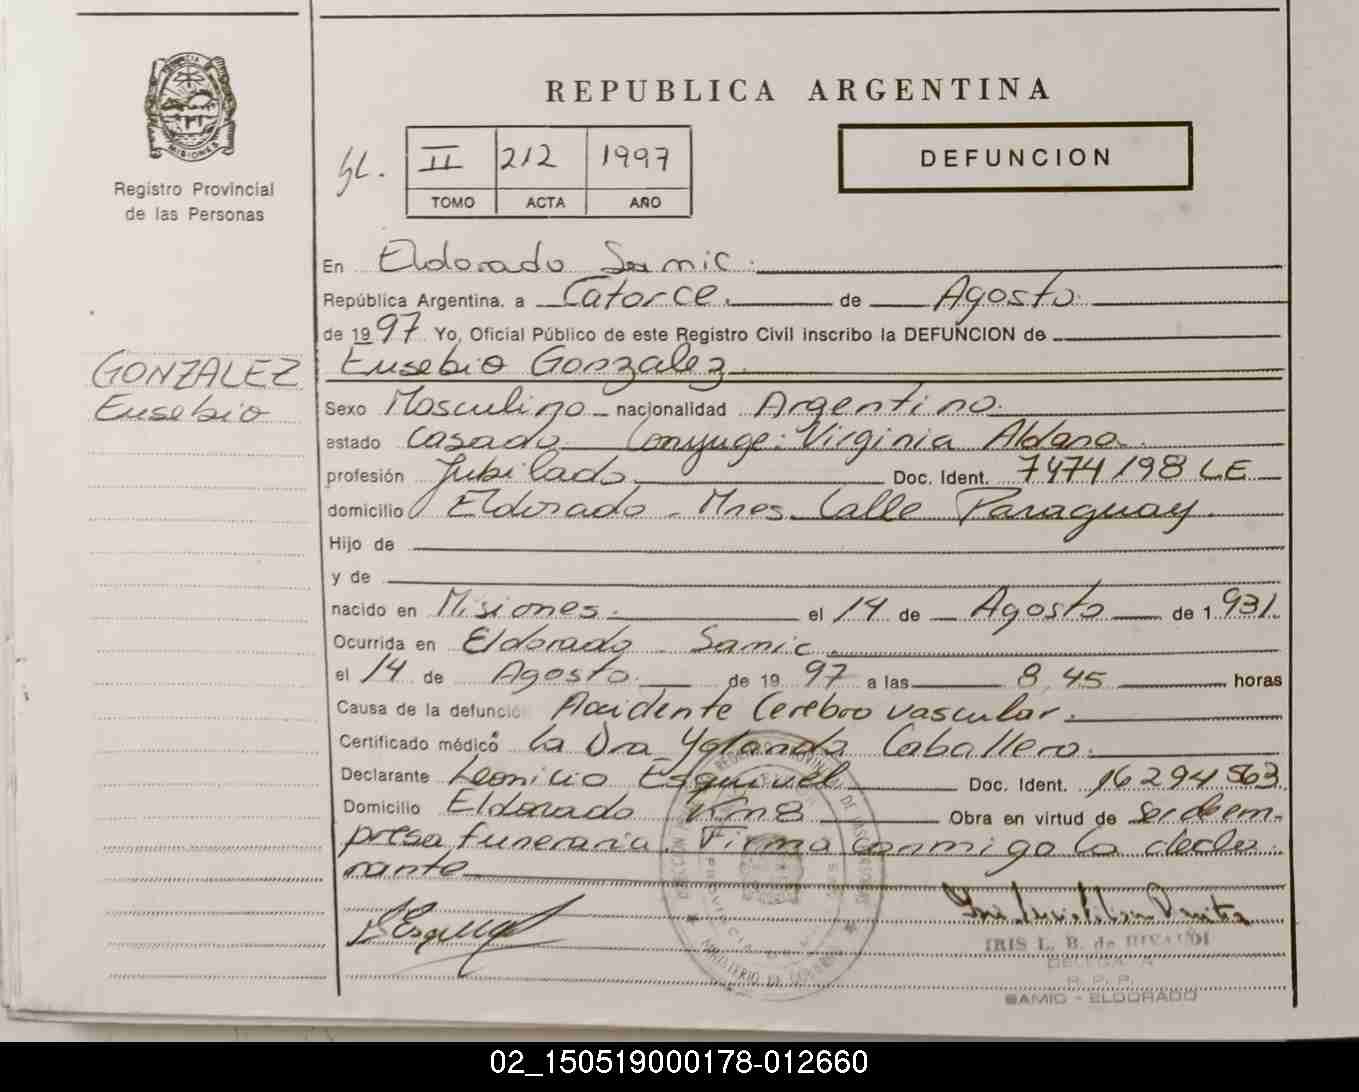 MISIONES
Registro Provincial
de las Personas
GONZALEZ
Eusebio
REPUBLICA ARGENTINA
II 212 1997
TOMO ACTA AÑO
DEFUNCION
En Eldorado Samic.
República Argentina. a Catorce de Agosto
de 1997 Yo, Oficial Público de este Registro Civil inscribo la DEFUNCION de
Eusebio Gonzalez
Sexo Masculino nacionalidad Argentino.
estado Casado Conyuge: Virginia Aldana
profesión Jubilado Doc. Ident. 7474198 LE
domicilio Eldorado - Mnes. Calle Paraguay.
Hijo de
y de
nacido en Misiones. el 14 de Agosto de 1.931.
Ocurrida en Eldorado Samic.
el 14 de Agosto. de 1997 a las 8,45 horas
Causa de la defunción Accidente Cerebro vascular.
Certificado médico la Dra Yolanda Caballero.
Declarante Leonicio Esquivel Doc. Ident. 16294563
Domicilio Eldorado Km8 Obra en virtud de ser de em-
presa funeraria. Firma conmigo la decla-
rante
IRIS L. B. de
DELEGADA
R. P. P.
SAMIC - ELDORADO
MINISTERIO DE GOBIERNO
02_150519000178-012660